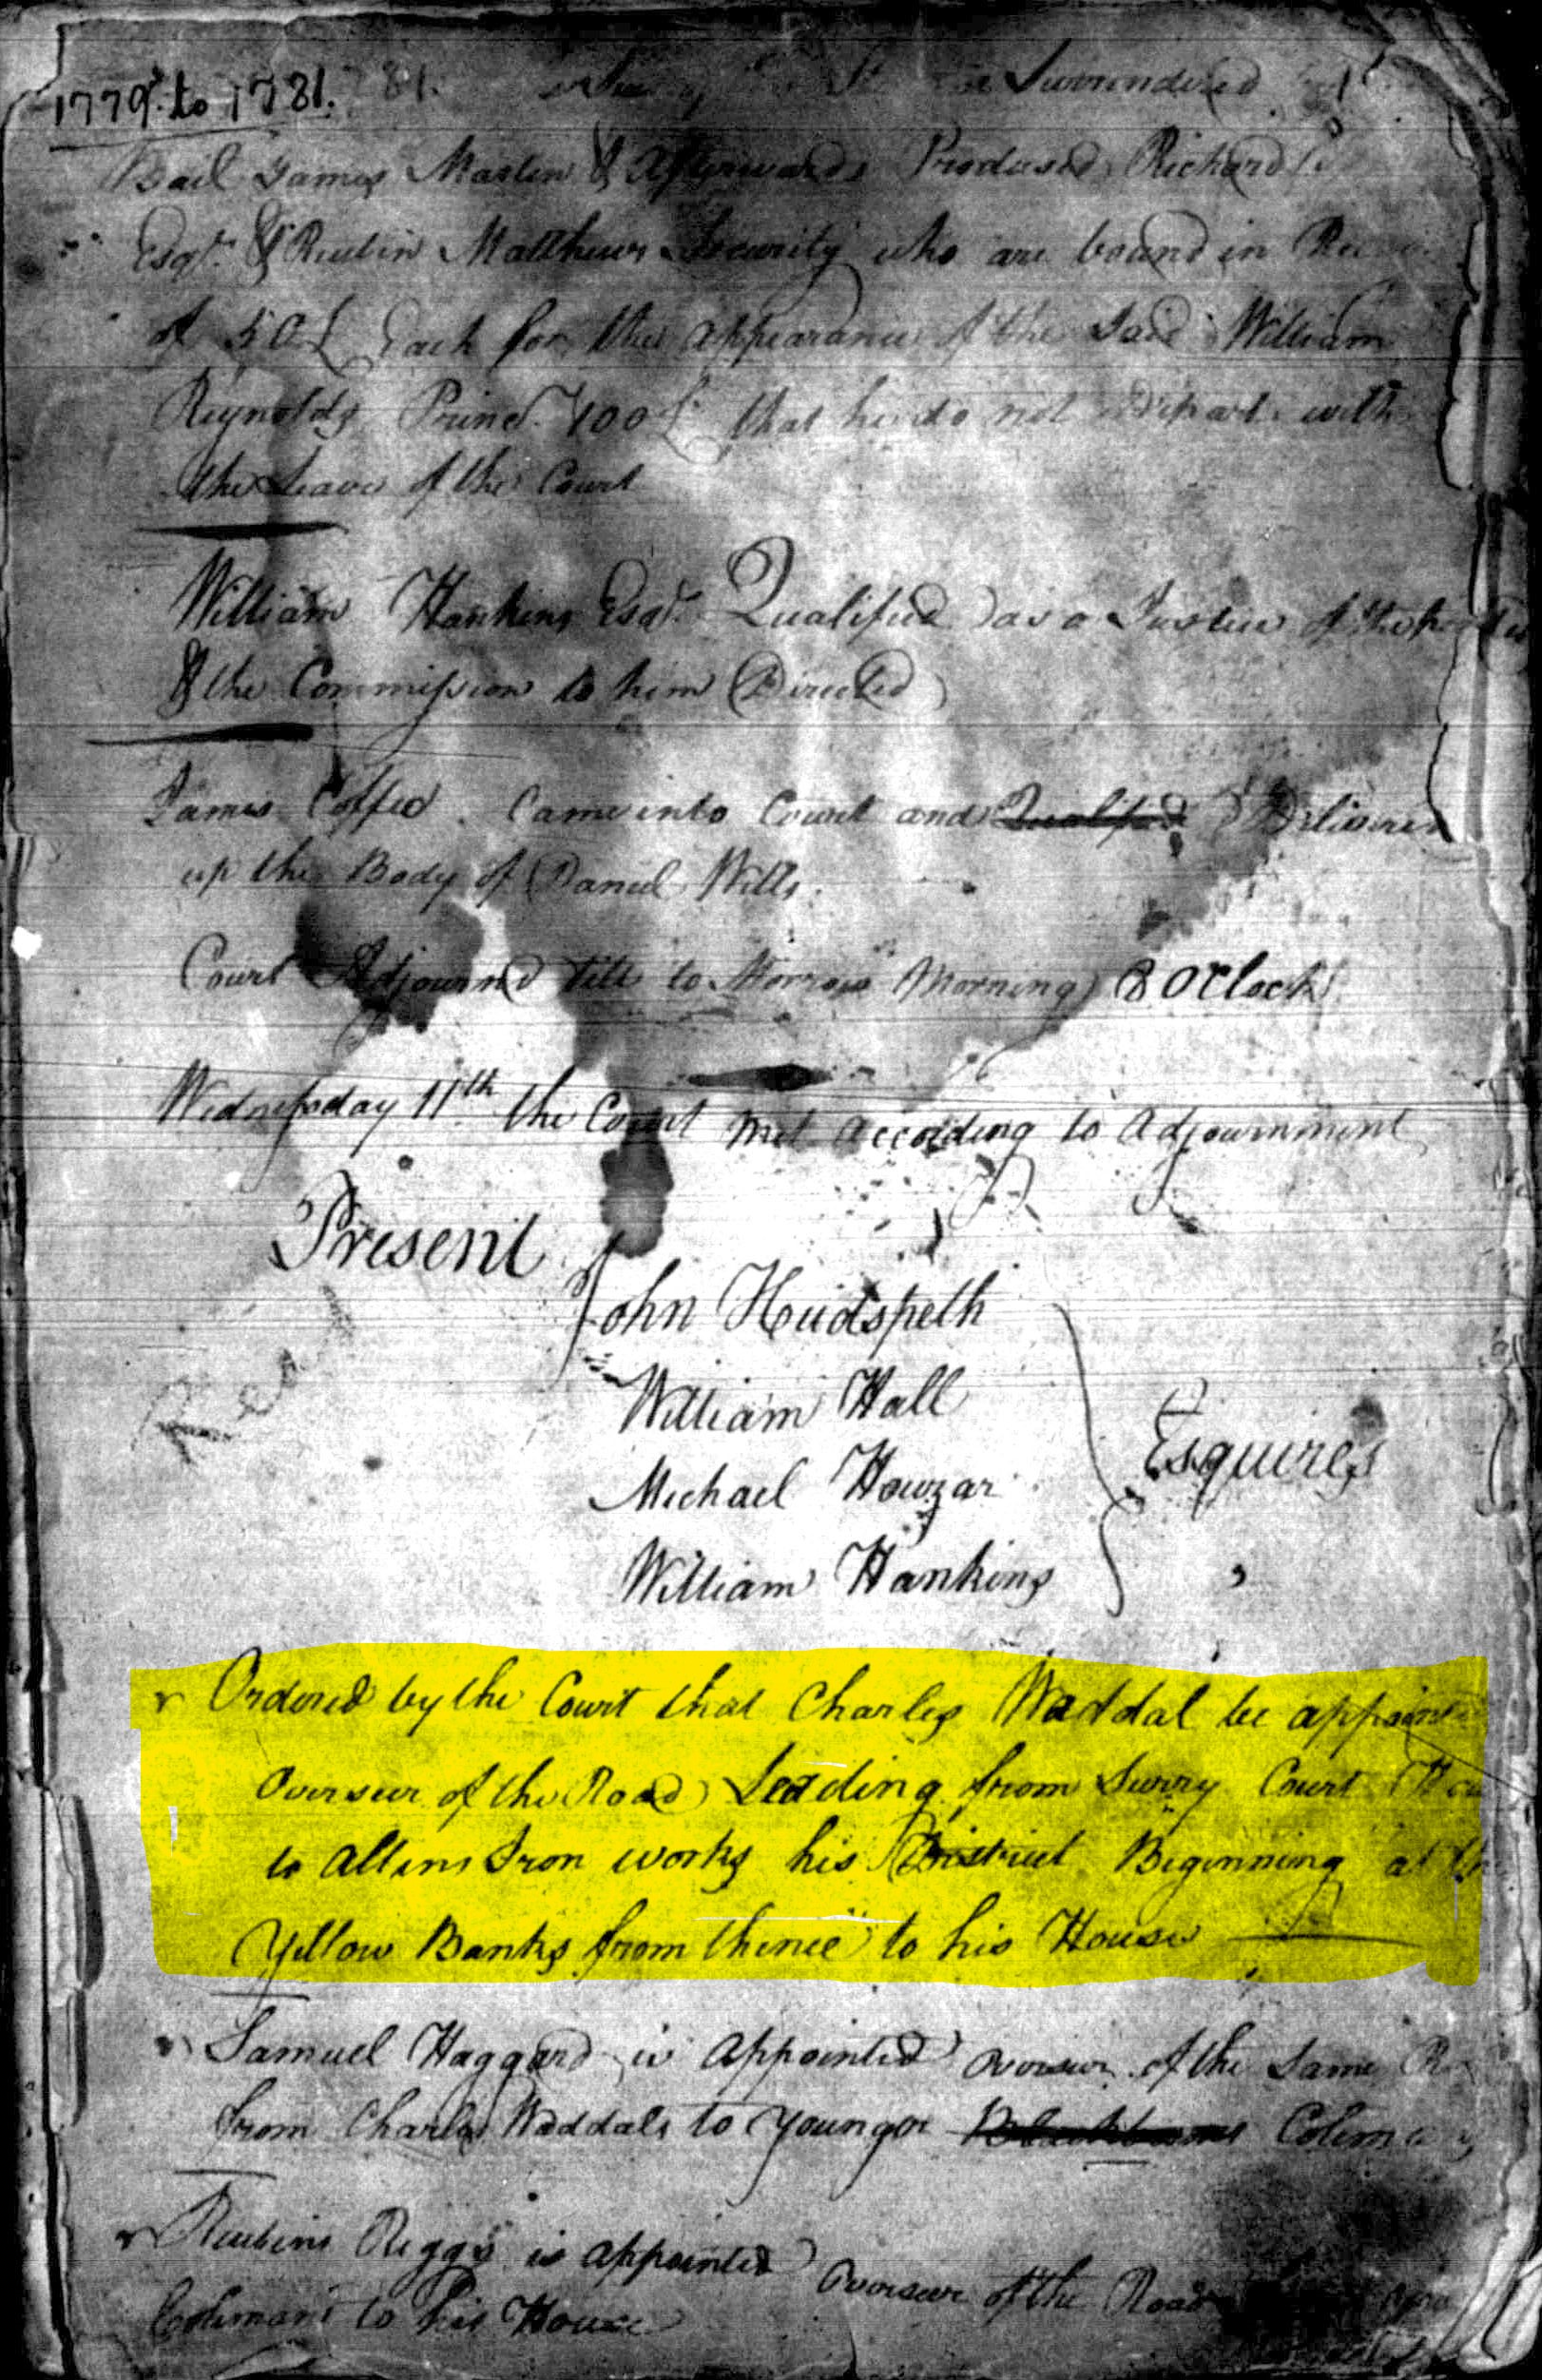 1779 to 1781.
Surrendered
Bail James Martin & Afterwards Produced Richard
Esqr. & Reubin Matthews Security who are bound in
of 50£ Each for the appearance of the Said William
Reynolds Princl. 100£ that he do not depart with
the Leave of the Court
William Hankins Esqr. Qualified as a Justice of the
& the Commission to him Directed
James Coffee Came into Court and Qualified Delivered
up the Body of Daniel Wills.
Court Adjourned till to Morrow Morning 8 OClock
Wednesday 11th the Court met according to Adjournment
Present
John Hudspeth
William Hall
Michael Howzar
William Hankins
Esquires
Ordered by the Court that Charles Waddal be appoint
Overseer of the Road Leading from Surry Court
to Allens Iron works his District Beginning at
Yellow Banks from thence to his House
Samuel Haggard is appointed overseer of the Same
from Charles Waddals to Youngor Blackburns
Reubin Riggs is appointed Overseer of the Road
Colemans to his House